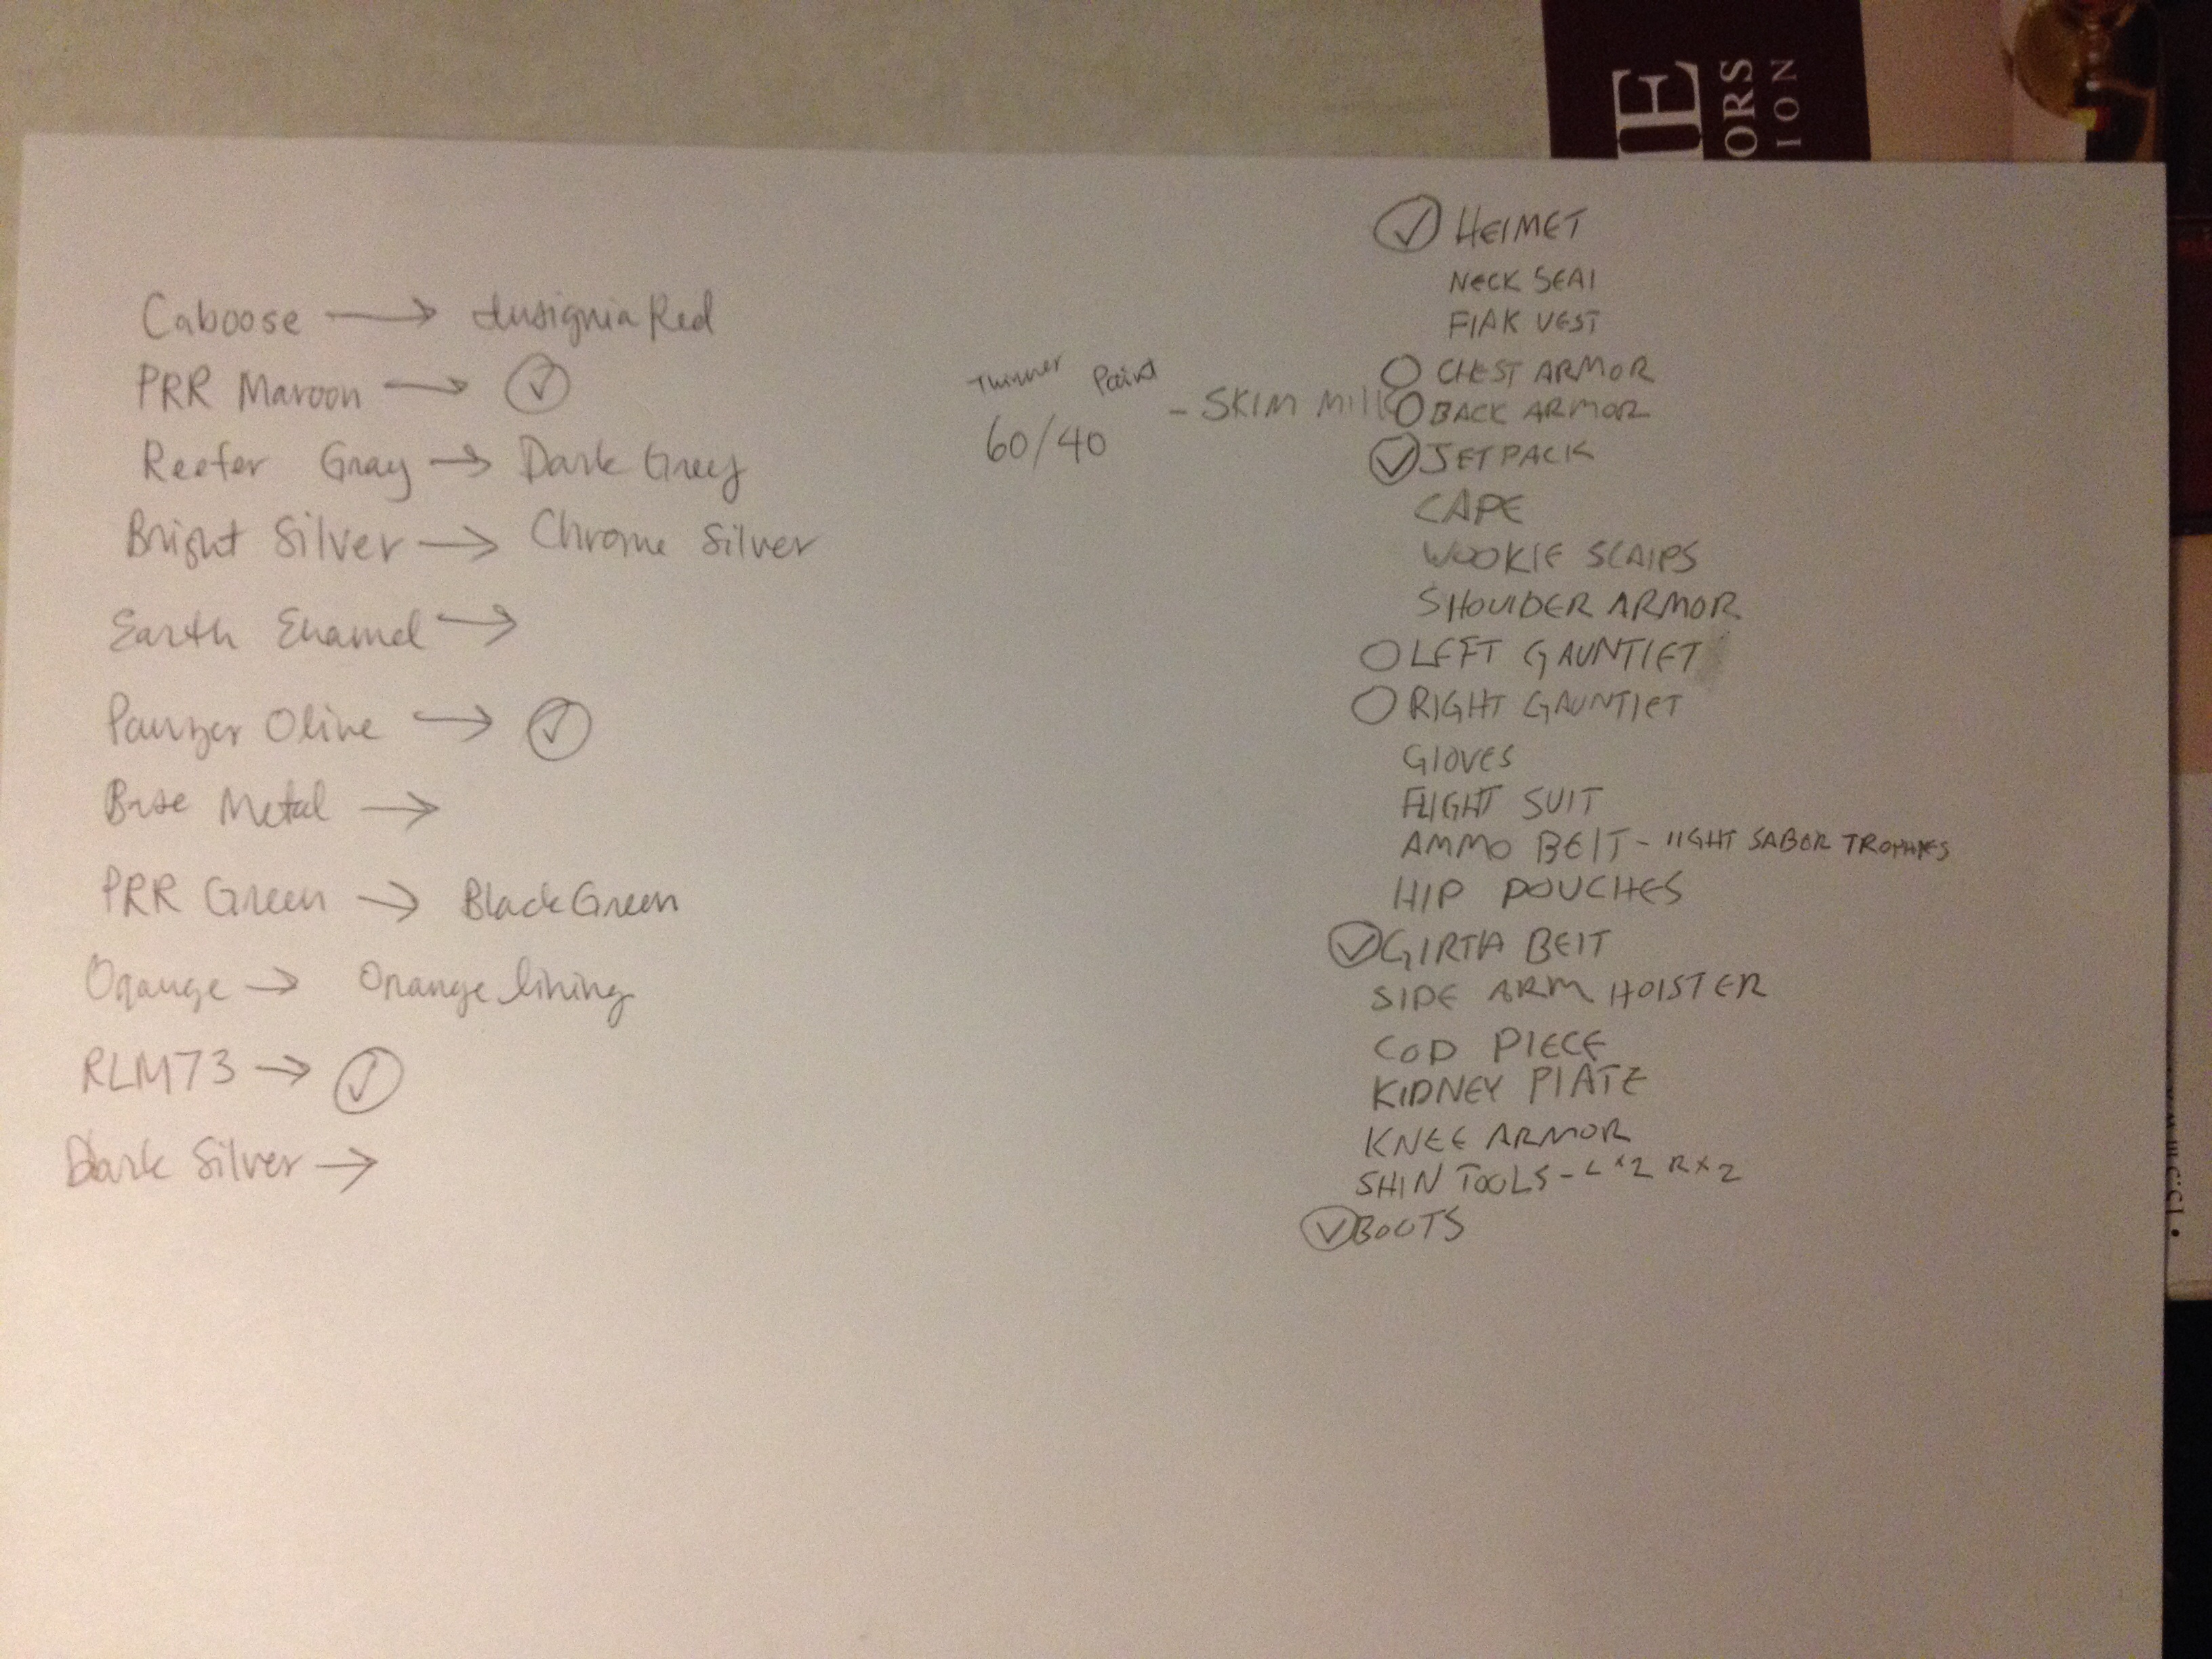 Caboose → Insignia Red
PRR Maroon → ✓
Reefer Gray → Dark Grey
Bright Silver → Chrome Silver
Earth Enamel →
Panzer Olive → ✓
Base Metal →
PRR Green → Black Green
Orange → Orange lining
RLM73 → ✓
Dark Silver →
Thinner Paint
60/40 - SKIM MILK
✓ HElMET
NECK SEAl
FlAK VEST
O CHEST ARMOR
O BACK ARMOR
✓ JETPACK
CAPE
WOOKIE SCAlPS
SHOUlDER ARMOR
O LEFT GAUNTlET
O RIGHT GAUNTlET
GlOVES
FLIGHT SUIT
AMMO BElT - lIGHT SABER TROPHIES
HIP POUCHES
✓ GIRTH BElT
SIDE ARM HOlSTER
COD PIECE
KIDNEY PlATE
KNEE ARMOR
SHIN TOOLS - L x 2 R x 2
✓ BOOTS
E
ORS
ION